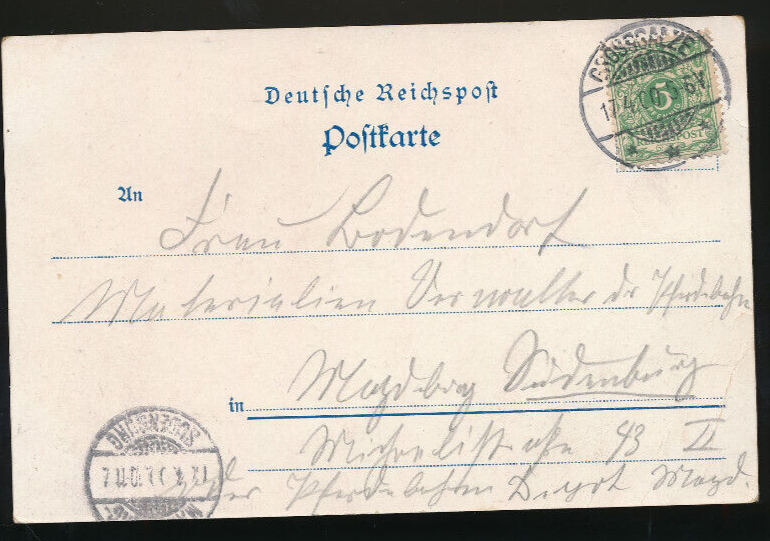 Deutsche Reichspost
Postkarte
GROSSSALZE
17.4.00
5
An
Frau Bodendorf
Materialien Verwalter der Pferdebahn
Magdeburg Sudenburg
in
Michaelistraße 43 II
der Pferdebahn Depot Magd.
SUDENBURG